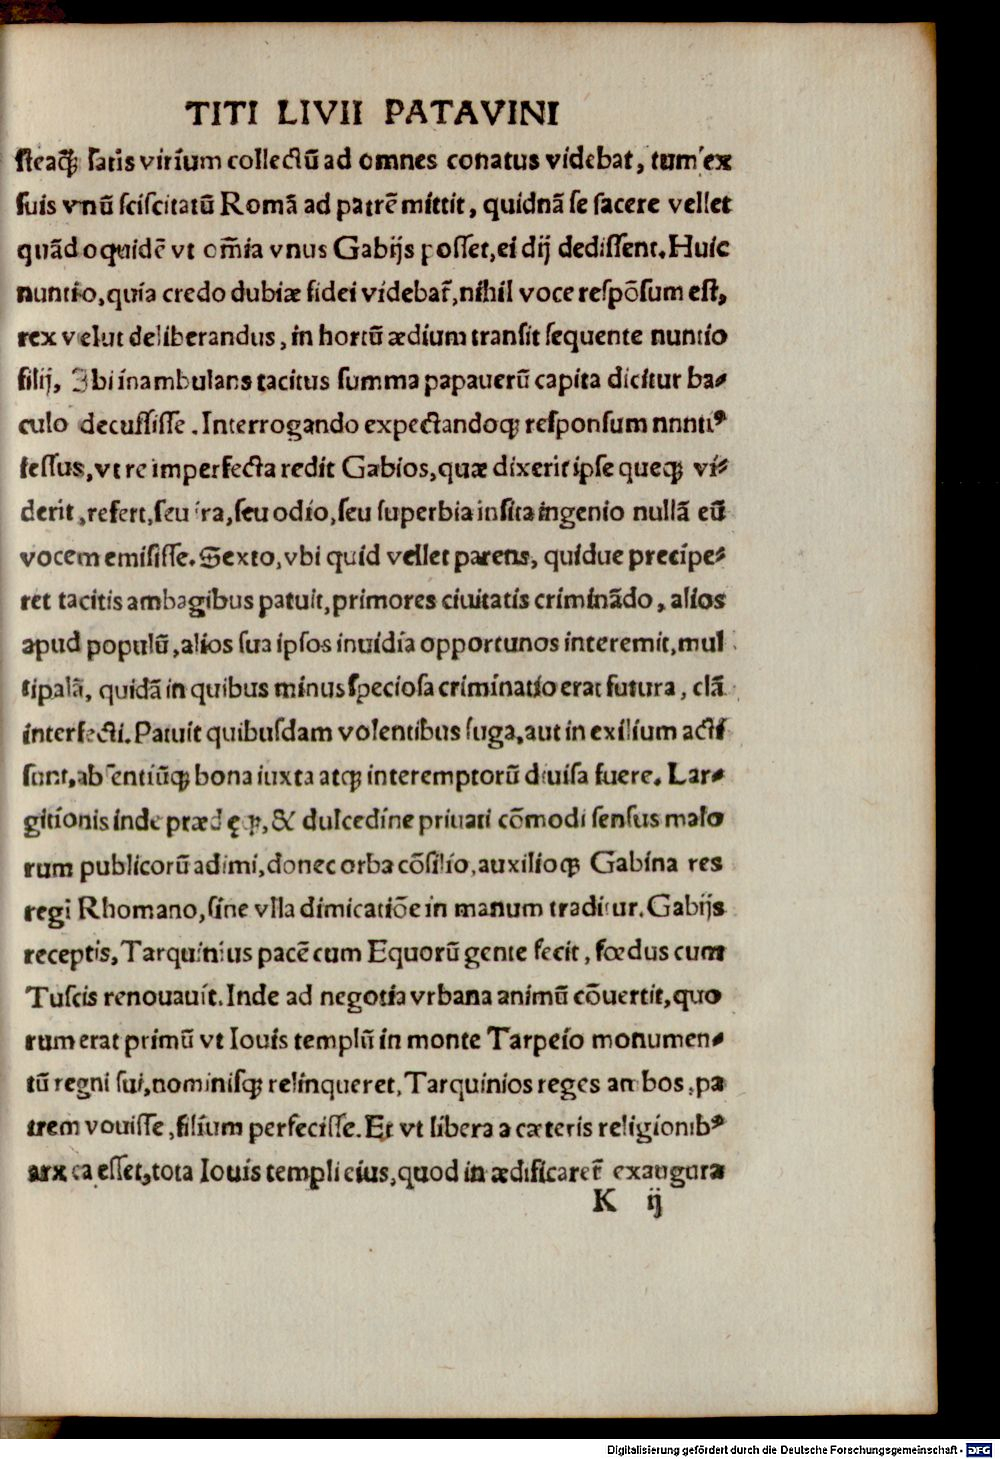 TITI LIVII PATAVINI
steaqꝫ satis virium collectū ad omnes conatus videbat, tum ex
suis vnū sciscitatū Romā ad patrē mittit, quidnā se facere vellet
quādoquidē vt oīa vnus Gabijs posset, ei dij dedissent. Huic
nuntio, quia credo dubiæ fidei videbat̄, nihil voce respōsum est,
rex velut deliberandus, in hortū ædium transit sequente nuntio
filij, Ibi inambulans tacitus summa papauerū capita dicitur ba⸗
culo decussisse. Interrogando expectandoqꝫ responsum nnntiꝰ
fessus, vt re imperfecta redit Gabios, quæ dixerit ipse queqꝫ vi⸗
derit, refert, seu ira, seu odio, seu superbia insita ingenio nullā eū
vocem emisisse. Sexto, vbi quid vellet parens, quidue precipe⸗
ret tacitis ambagibus patuit, primores ciuitatis criminādo, alios
apud populū, alios sua ipsos inuidia opportunos interemit, mul
ti palā, quidā in quibus minus speciosa criminatio erat futura, clā
interfecti. Patuit quibusdam volentibus fuga, aut in exilium acti
sunt, absentiūqꝫ bona iuxta atqꝫ interemptorū diuisa fuere. Lar⸗
gitionis inde prædęqꝫ, & dulcedine priuati cōmodi sensus malo
rum publicorū adimi, donec orba cōsilio, auxilioqꝫ Gabina res
regi Rhomano, sine vlla dimicatiōe in manum traditur. Gabijs
receptis, Tarquinius pacē cum Equorū gente fecit, fœdus cum
Tuscis renouauit. Inde ad negotia vrbana animū cōuertit, quo
rum erat primū vt Iouis templū in monte Tarpeio monumen⸗
tū regni sui, nominisqꝫ relinqueret, Tarquinios reges ambos, pa
trem vouisse, filium perfecisse. Et vt libera a cæteris religionibꝰ
arx ea esset, tota Iouis templi eius, quod inædificaret̄ exaugura
K ij
Digitalisierung gefördert durch die Deutsche Forschungsgemeinschaft - DFG